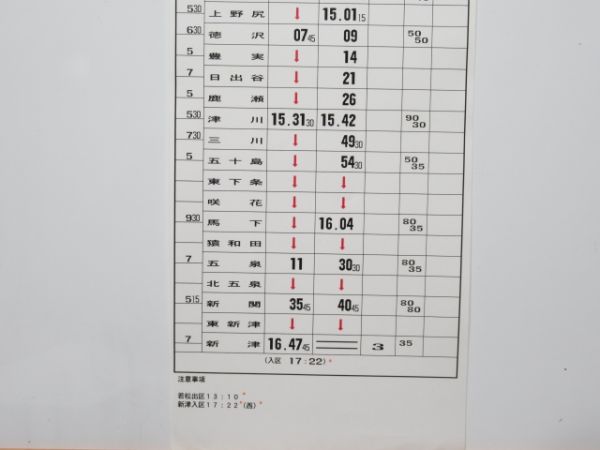 530 上野尻 ↓ 15.01 15
630 徳沢 07 45 09 50 50
5 豊実 ↓ 14
7 日出谷 ↓ 21
5 鹿瀬 ↓ 26
530 津川 15.31 30 15.42 90 30
730 三川 ↓ 49 30
5 五十島 ↓ 54 30 50 35
東下条 ↓ ↓
咲花 ↓ ↓
930 馬下 ↓ 16.04 80 35
猿和田 ↓ ↓
7 五泉 11 30 30 80 35
北五泉 ↓ ↓
515 新関 35 45 40 45 80 80
東新津 ↓ ↓
7 新津 16.47 45 3 35
(入区 17:22)*
注意事項
若松出区13:10*
新津入区17:22*(西)*